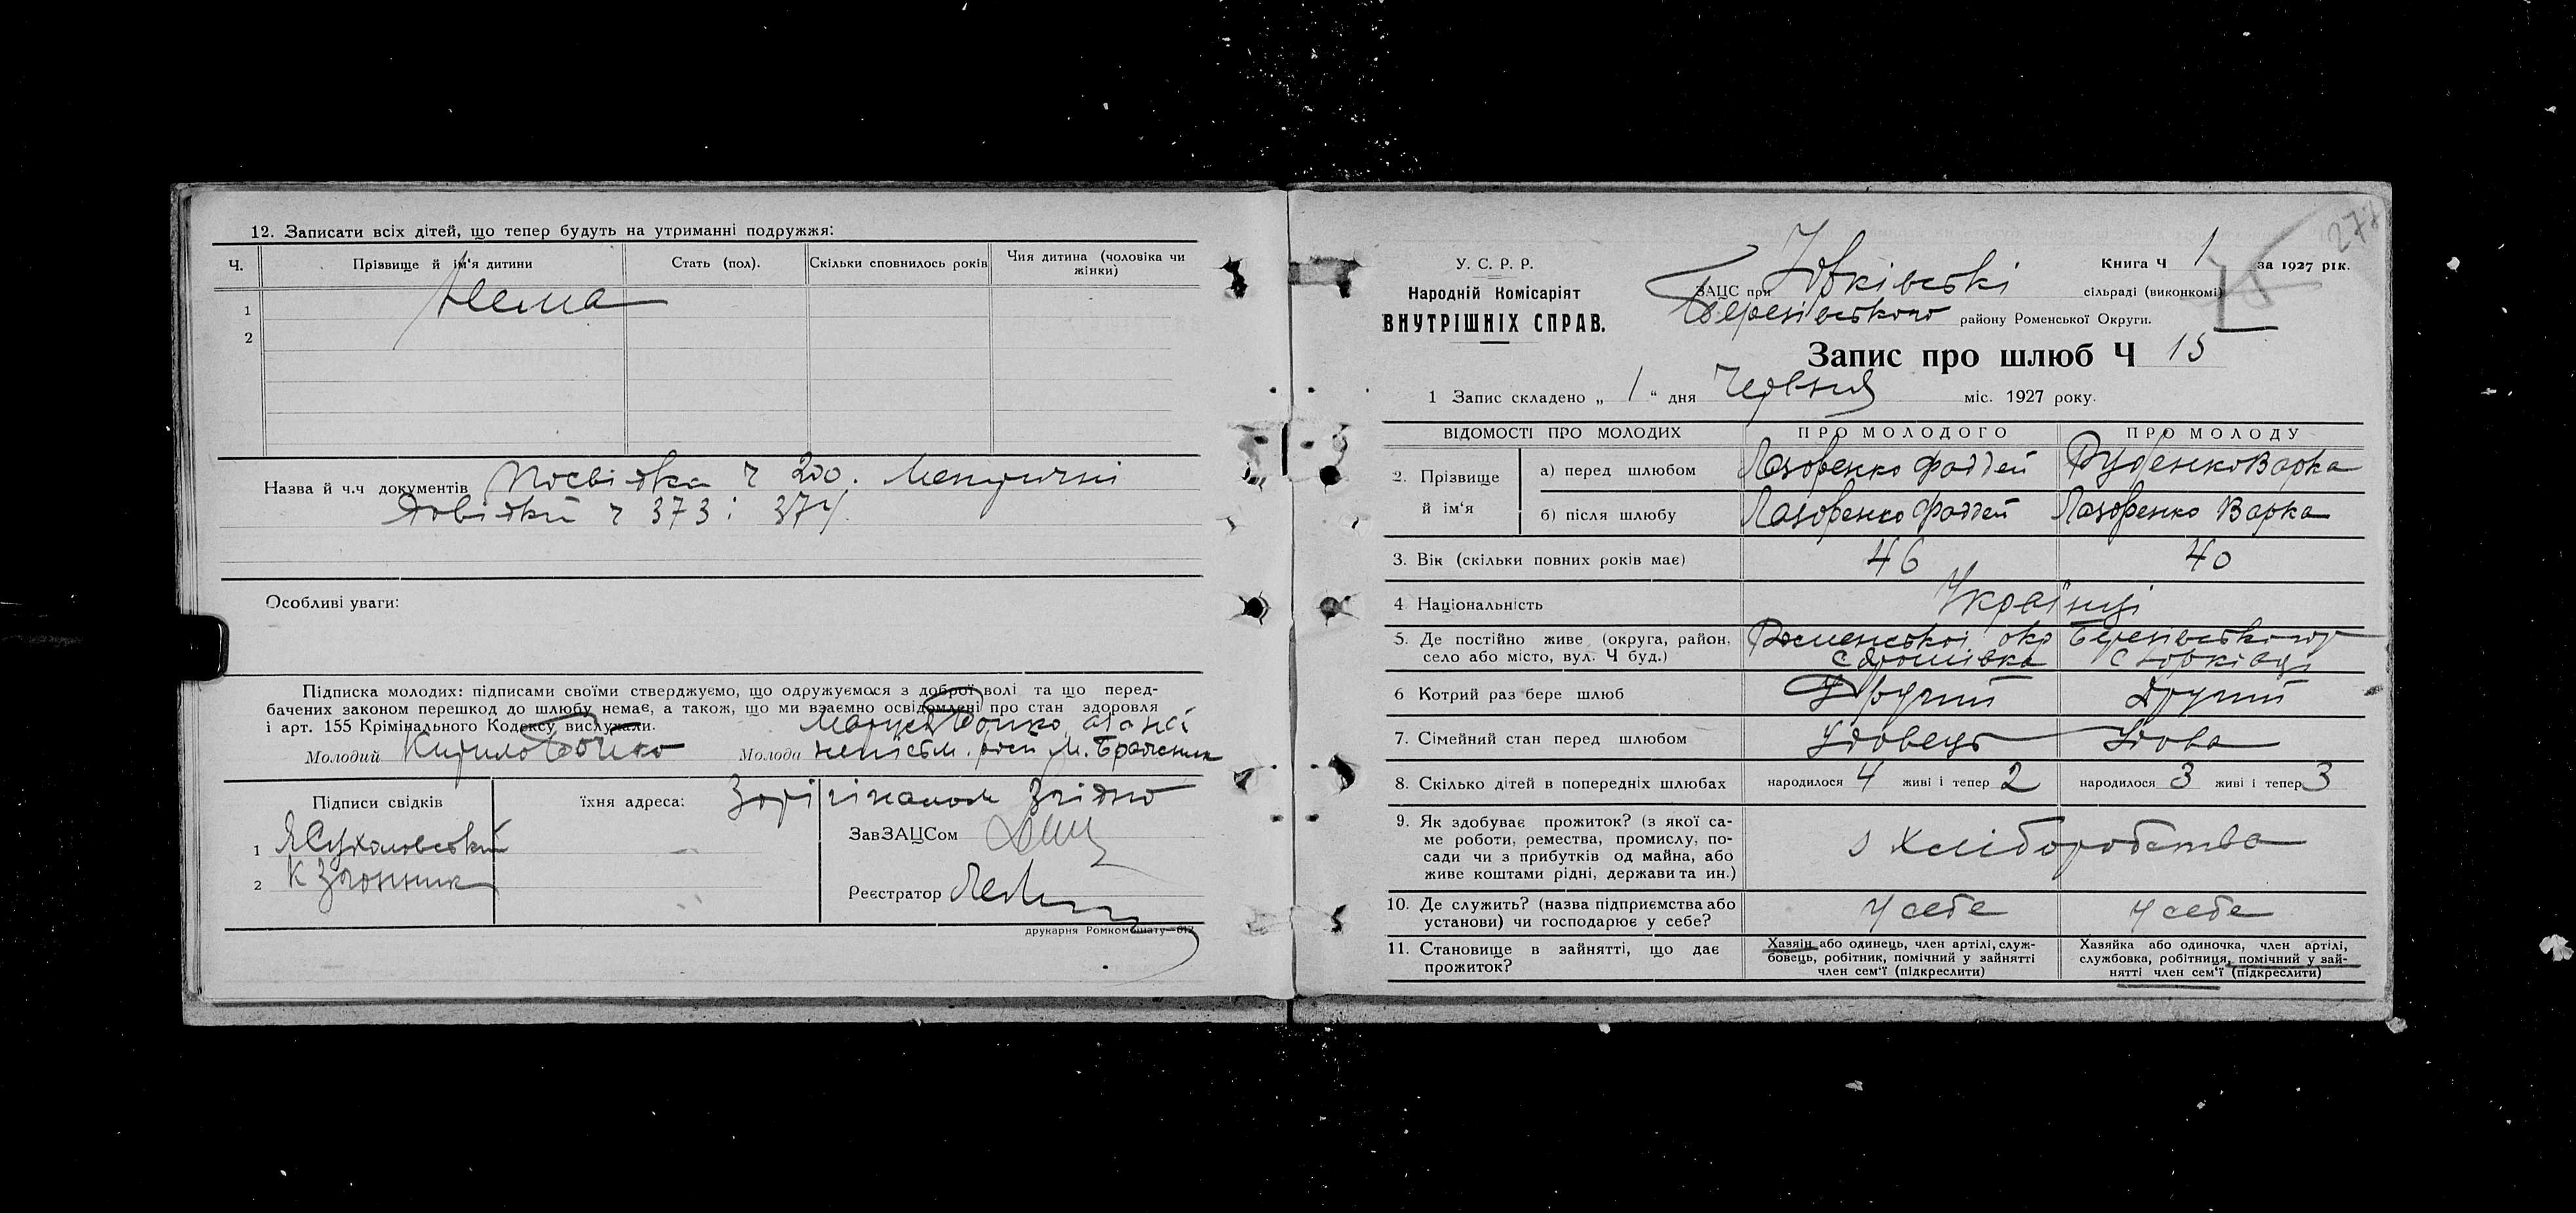 12. Записати всіх дітей, що тепер будуть на утриманні подружжя:
Ч. Прізвище й ім'я дитини Стать (пол). Скільки сповнилось років Чия дитина (чоловіка чи жінки)
1 Нема
2
Назва й ч.ч документів Посвідка ч 200. Метричні
Довідки ч 373 і 374.
Особливі уваги:
Підписка молодих: підписами своїми стверджуємо, що одружуємося з доброї волі та що перед-
бачених законом перешкод до шлюбу немає, а також, що ми взаємно освідомлені про стан здоровля
і арт. 155 Крімінального Кодексу вислухали.
Молодий Кирило Бойко Молода неписьм. М. Бражник
Підписи свідків їхня адреса: З оригіналом Згідно
ЗавЗАЦСом
1 Я Сухановський
2 К
Реєстратор
друкарня Ромкомтшату—612
277
У. С. Р. Р.
Народній Комісаріят
ВНУТРІШНІХ СПРАВ.
Книга Ч 1 за 1927 рік.
ЗАЦС при Ювківські сільраді (виконкомі)
Березівського району Роменської Округи.
Запис про шлюб Ч 15
1 Запис складено „ 1 “ дня Червня міс. 1927 року.
ВІДОМОСТІ ПРО МОЛОДИХ ПРО МОЛОДОГО ПРО МОЛОДУ
2. Прізвище й ім'я
а) перед шлюбом Лазоренко Фаддей Руденко Варка
б) після шлюбу Лазоренко Фаддей Лазоренко Варка
3. Вік (скільки повних років має) 46 40
4 Національність Українці
5. Де постійно живе (округа, район, Роменської окр Березівського р
село або місто, вул. Ч буд.) с Ярошівка с Ювківці
6 Котрий раз бере шлюб Другий Другий
7. Сімейний стан перед шлюбом Удовець Удова
8. Скілько дітей в попередніх шлюбах народилося 4 живі і тепер 2 народилося 3 живі і тепер 3
9. Як здобуває прожиток? (з якої са-
ме роботи, ремества, промислу, по-
сади чи з прибутків од майна, або
живе коштами рідні, держави та ин.)
з Хліборобства
10. Де служить? (назва підприємства або
установи) чи господарює у себе?
у себе у себе
11. Становище в зайнятті, що дає
прожиток?
Хазяїн або одинець, член артілі, служ-
бовець, робітник, помічний у зайнятті
член сем'ї (підкреслити)
Хазяйка або одиночка, член артілі,
службовка, робітниця, помічний у зай-
нятті член сем'ї (підкреслити)